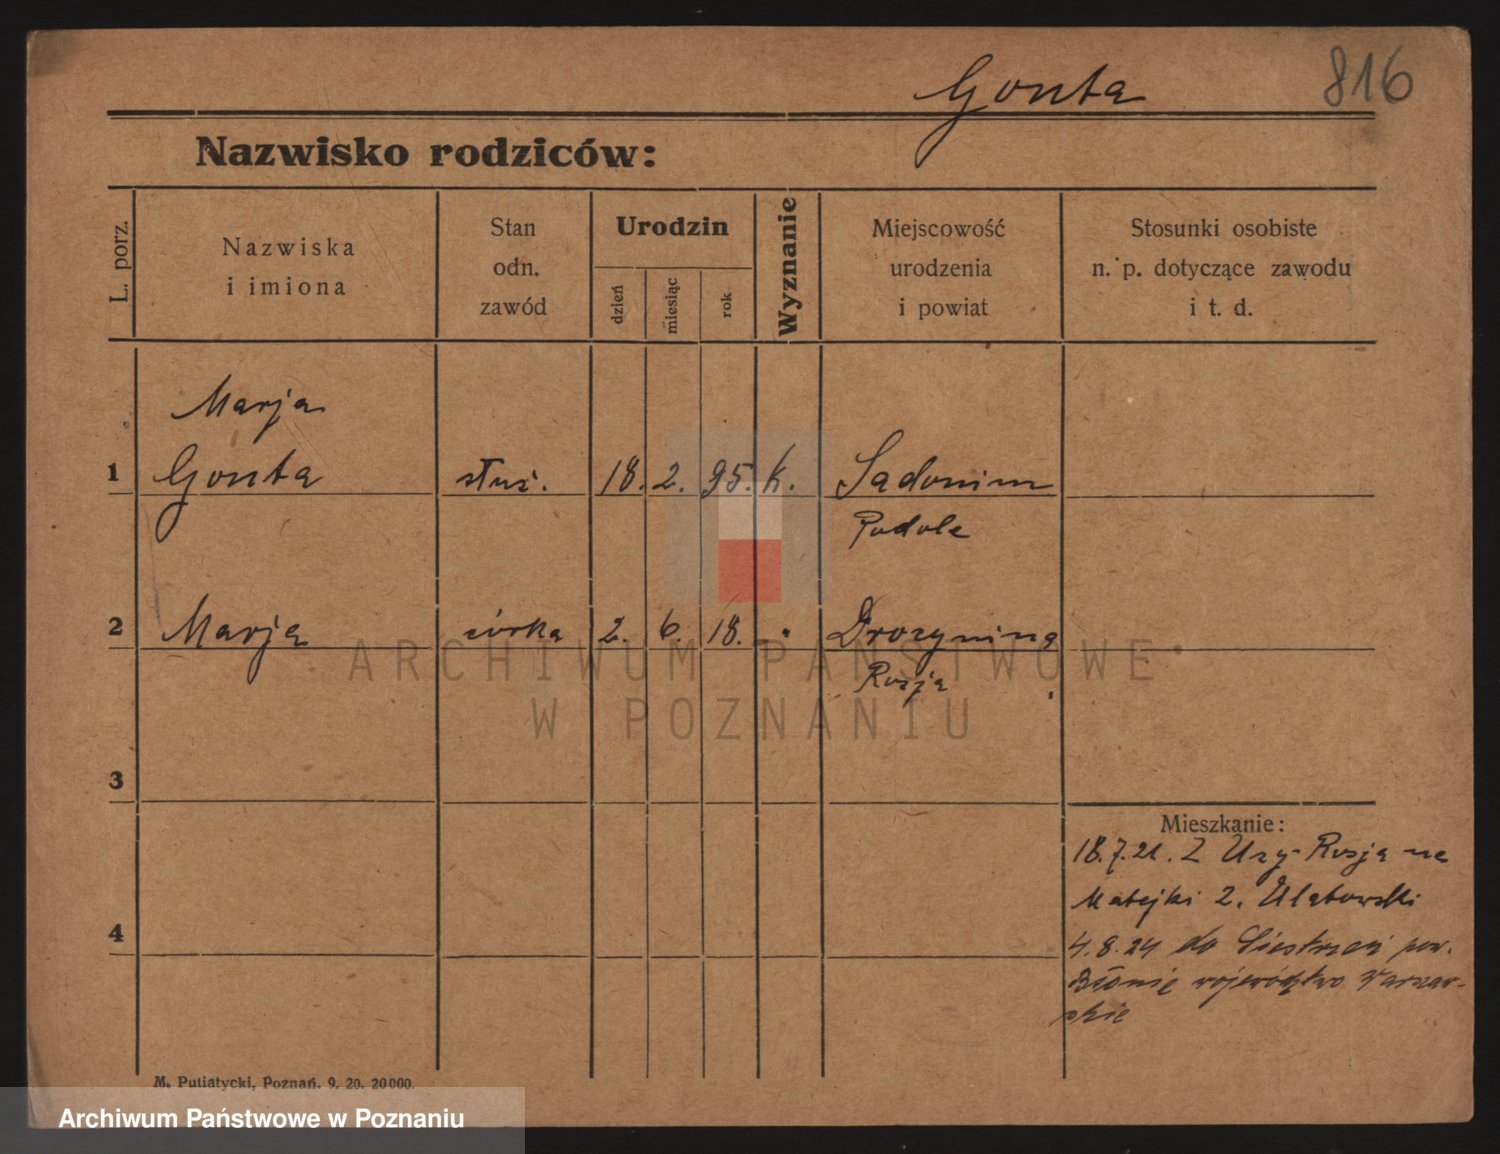 Gonta
816
Nazwisko rodziców:
L. porz.
Nazwiska
i imiona
Stan
odn.
zawód
Urodzin
dzień
miesiąc
rok
Wyznanie
Miejscowość
urodzenia
i powiat
Stosunki osobiste
n. p. dotyczące zawodu
i t. d.
Marja
1 Gonta służ. 18. 2. 95. k. Sadonim
Podole
2 Marja córka 2. 6. 18. " Drozynina
Rosja
3
Mieszkanie:
18.7.21. Z Uzy-Rosja na
Matejki 2. Ulatowski
4
4.8.24 do Siestrzeń pow.
Błonie województwo Warszaw-
skie
M. Putiatycki, Poznań. 9. 20. 20000.
ARCHIWUM PAŃSTWOWE
W POZNANIU
Archiwum Państwowe w Poznaniu